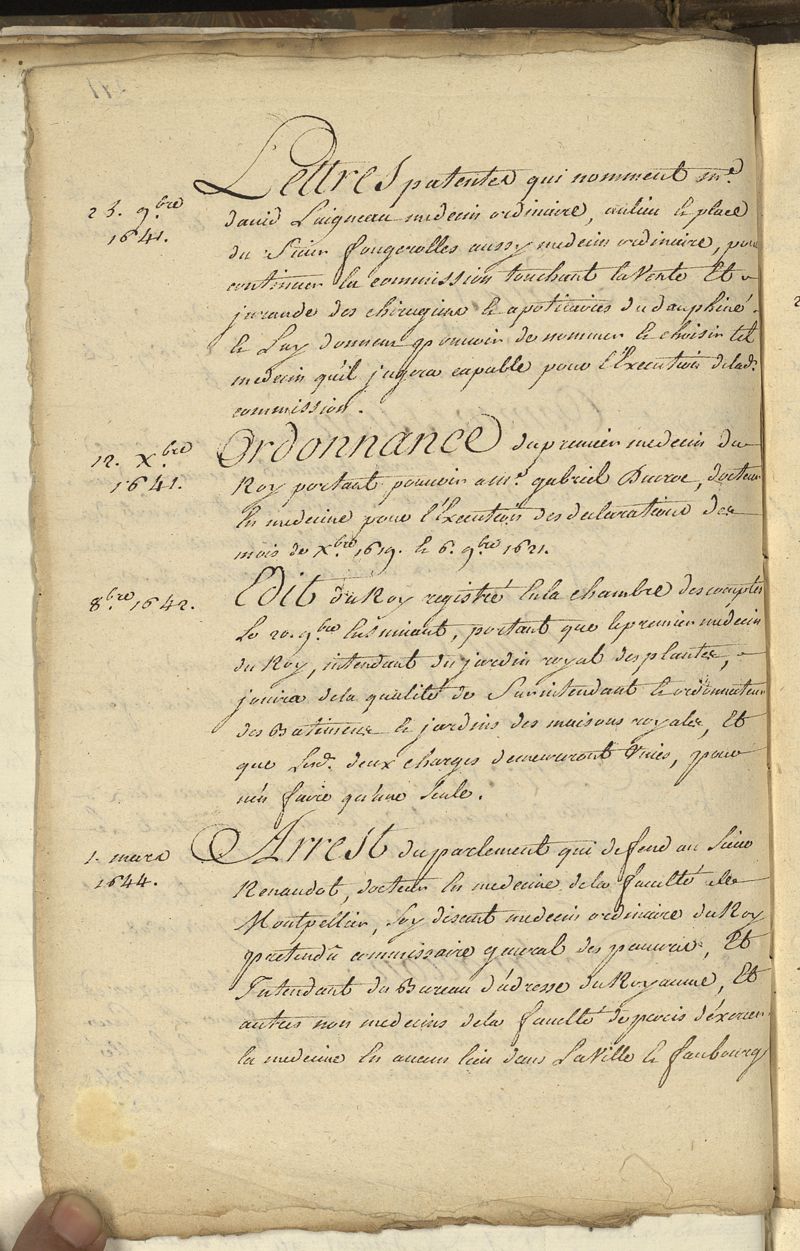 Lettres patentes qui nomment mr.
23. 9bre 1641.
david Laigneau medecin ordinaire, au lieu & place
du Sieur fougerolles aussy medecin ordinaire, pour
continuer la commission touchant la Vente Et
jurande des chirugiens & apoticaires du dauphiné
& Luy donner pouvoir de nommer & choisir tel
medecin qu'il jugera capable pour l'Execution de lad.
commission.
12. Xbre 1641.
Ordonnance du premier medecin du
Roy portant pouvoir a mr. gabriel, docteur
En medecine pour l'Execution des declarations des
mois de Xbre 1619. & 6. 9bre 1621.
8bre 1642.
Edit du Roy registré En la chambre des comptes
Le 20. 9bre Ensuivant, portant que le premier medecin
du Roy, intendant du jardin royal des plantes,
jouira de la qualité de Surintendant & ordonnateur
des Batimens & jardins des maisons royales, Et
que Lesd. deux charges demeureront Unies, pour
n'en faire qu'une Seule.
1. mars 1644.
Arrest du parlement qui defend au Sieur
Renaudot, docteur En medecine de la faculté de
Montpellier, soy disant medecin ordinaire du Roy
pretendu commissaire general des pauvres, Et
Intendant du Bureau d'adresse du Royaume, Et
autres non medecins de la faculté de paris d'éxercer
la medecine En aucun lieu dans La Ville & faubourgs